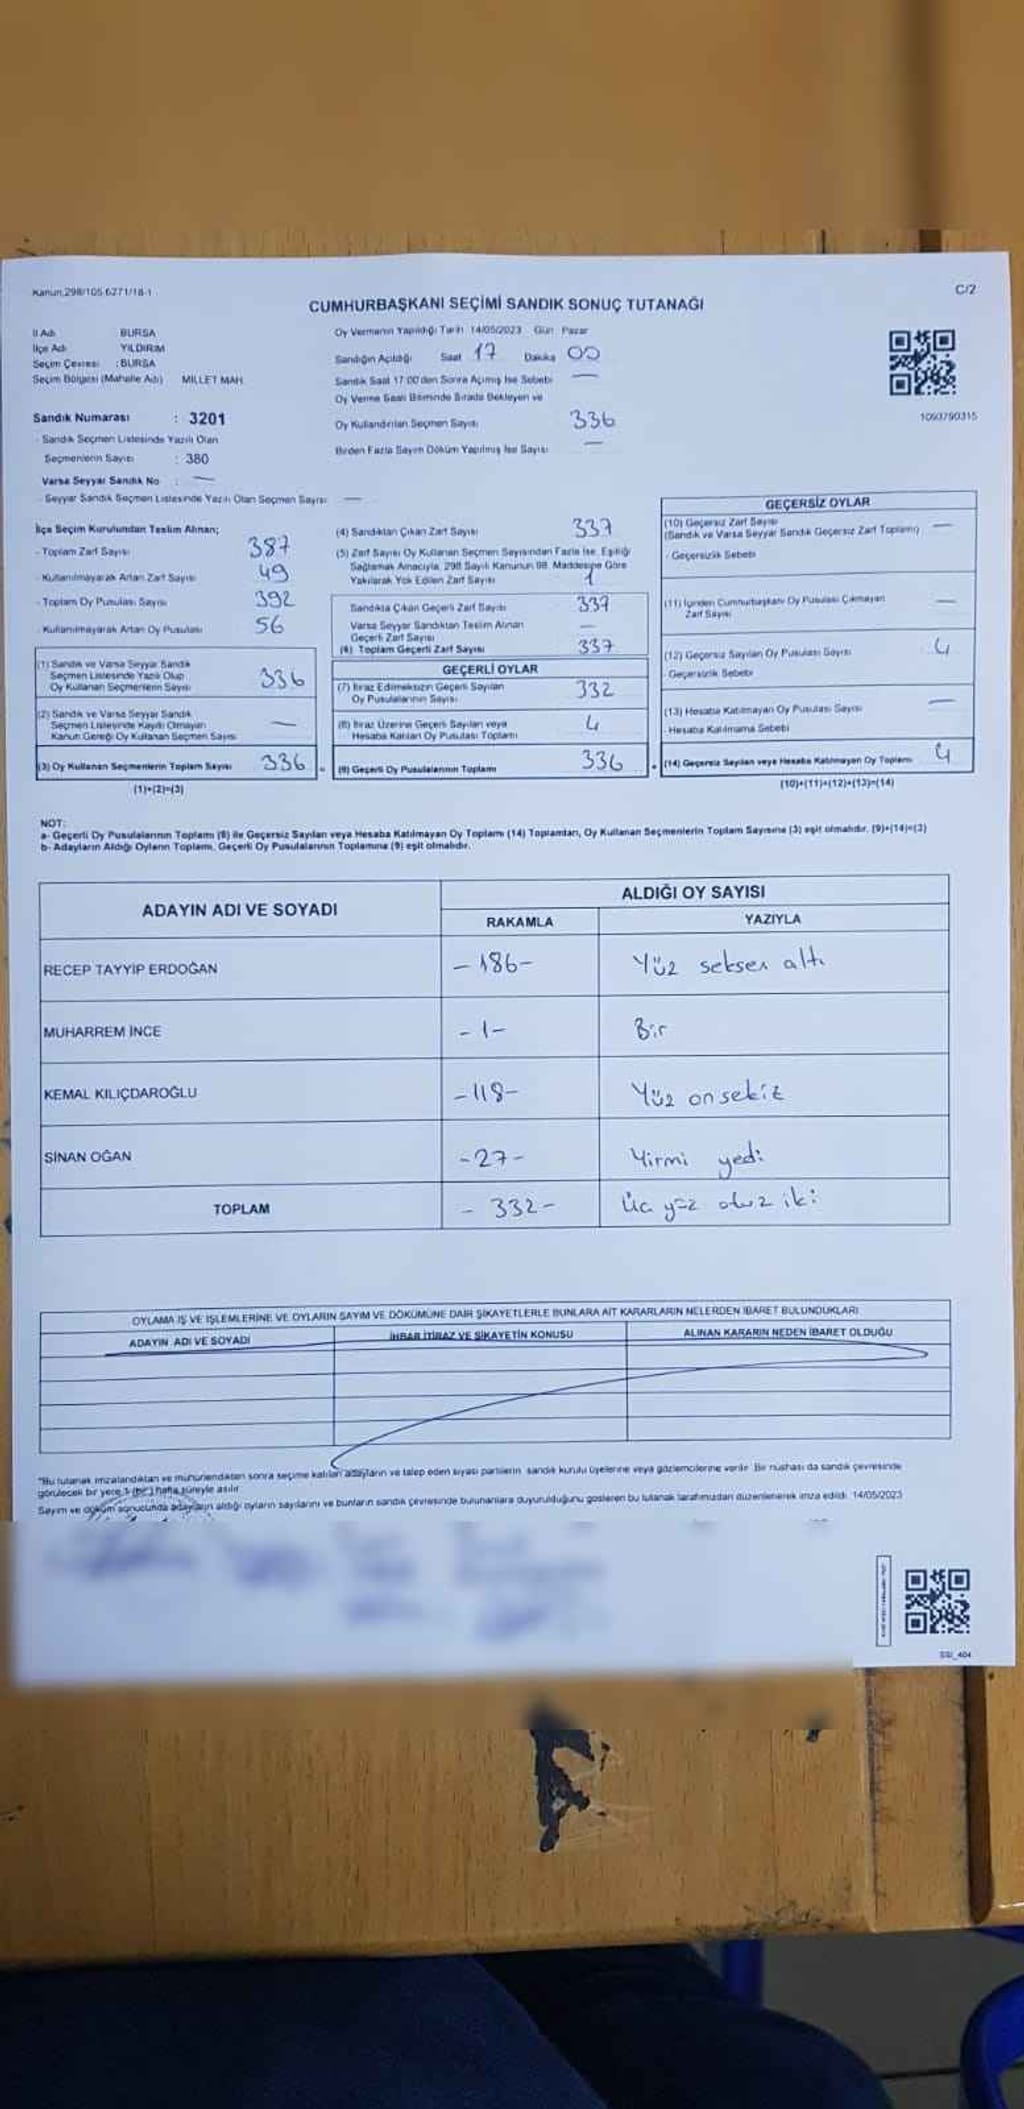 Kanun.298/105.6271/18-1
C/2
CUMHURBAŞKANI SEÇİMİ SANDIK SONUÇ TUTANAĞI
İl Adı BURSA
İlçe Adı YILDIRIM
Seçim Çevresi : BURSA
Seçim Bölgesi (Mahalle Adı) MİLLET MAH.
Oy Vermenin Yapıldığı Tarih 14/05/2023 Gün Pazar
Sandığın Açıldığı Saat 17 Dakika 00
Sandık Saat 17:00'den Sonra Açımış İse Sebebi —
Oy Verme Saati Bitiminde Sırada Bekleyen ve
Oy Kullandırılan Seçmen Sayısı 336
Birden Fazla Sayım Döküm Yapılmış İse Sayısı —
1093790315
Sandık Numarası : 3201
- Sandık Seçmen Listesinde Yazılı Olan
Seçmenlerin Sayısı : 380
Varsa Seyyar Sandık No : —
- Seyyar Sandık Seçmen Listesinde Yazılı Olan Seçmen Sayısı —
İlçe Seçim Kurulundan Teslim Alınan;
- Toplam Zarf Sayısı 387
- Kullanılmayarak Artan Zarf Sayısı 49
- Toplam Oy Pusulası Sayısı 392
- Kullanılmayarak Artan Oy Pusulası 56
(1) Sandık ve Varsa Seyyar Sandık
Seçmen Listesinde Yazılı Olup
Oy Kullanan Seçmenlerin Sayısı 336
(2) Sandık ve Varsa Seyyar Sandık
Seçmen Listesinde Kayıtlı Olmayan
Kanun Gereği Oy Kullanan Seçmen Sayısı —
(3) Oy Kullanan Seçmenlerin Toplam Sayısı 336
(1)+(2)=(3)
(4) Sandıktan Çıkan Zarf Sayısı 337
(5) Zarf Sayısı Oy Kullanan Seçmen Sayısından Fazla İse, Eşitliği
Sağlamak Amacıyla, 298 Sayılı Kanunun 98. Maddesine Göre
Yakılarak Yok Edilen Zarf Sayısı 1
Sandıkta Çıkan Geçerli Zarf Sayısı 337
Varsa Seyyar Sandıktan Teslim Alınan
Geçerli Zarf Sayısı —
(6) Toplam Geçerli Zarf Sayısı 337
GEÇERLİ OYLAR
(7) İtiraz Edilmeksizin Geçerli Sayılan
Oy Pusulalarının Sayısı 332
(8) İtiraz Üzerine Geçerli Sayılan veya
Hesaba Katılan Oy Pusulası Toplamı 4
(9) Geçerli Oy Pusulalarının Toplamı 336
GEÇERSİZ OYLAR
(10) Geçersiz Zarf Sayısı
(Sandık ve Varsa Seyyar Sandık Geçersiz Zarf Toplamı) —
- Geçersizlik Sebebi
(11) İçinden Cumhurbaşkanı Oy Pusulası Çıkmayan
Zarf Sayısı —
(12) Geçersiz Sayılan Oy Pusulası Sayısı 4
- Geçersizlik Sebebi
(13) Hesaba Katılmayan Oy Pusulası Sayısı —
- Hesaba Katılmama Sebebi
(14) Geçersiz Sayılan veya Hesaba Katılmayan Oy Toplamı 4
(10)+(11)+(12)+(13)=(14)
NOT:
a- Geçerli Oy Pusulalarının Toplamı (9) ile Geçersiz Sayılan veya Hesaba Katılmayan Oy Toplamı (14) Toplamları, Oy Kullanan Seçmenlerin Toplam Sayısına (3) eşit olmalıdır. (9)+(14)=(3)
b- Adayların Aldığı Oyların Toplamı, Geçerli Oy Pusulalarının Toplamına (9) eşit olmalıdır.
ADAYIN ADI VE SOYADI
ALDIĞI OY SAYISI
RAKAMLA YAZIYLA
RECEP TAYYİP ERDOĞAN -186- Yüz seksen altı
MUHARREM İNCE -1- Bir
KEMAL KILIÇDAROĞLU -118- Yüz onsekiz
SİNAN OĞAN -27- Yirmi yedi
TOPLAM -332- Üç yüz otuz iki
OYLAMA İŞ VE İŞLEMLERİNE VE OYLARIN SAYIM VE DÖKÜMÜNE DAİR ŞİKAYETLERLE BUNLARA AİT KARARLARIN NELERDEN İBARET BULUNDUKLARI
ADAYIN ADI VE SOYADI İHBAR İTİRAZ VE ŞİKAYETİN KONUSU ALINAN KARARIN NEDEN İBARET OLDUĞU
"Bu tutanak imzalandıktan ve mühürlendikten sonra seçime katılan adayların ve talep eden siyasi partilerin sandık kurulu üyelerine veya gözlemcilerine verilir. Bir nüshası da sandık çevresinde
görülecek bir yere 1 (bir) hafta süreyle asılır.
Sayım ve döküm sonucunda adayların aldığı oyların sayılarını ve bunların sandık çevresinde bulunanlara duyurulduğunu gösteren bu tutanak tarafımızdan düzenlenerek imza edildi. 14/05/2023
SSI_404